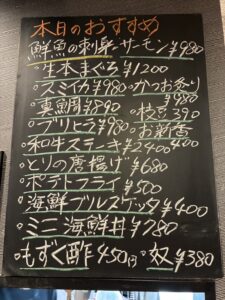 本日のおすすめ
鮮魚の刺身 サーモン¥980
・生本まぐろ¥1200
・スミイカ¥980 ・かつお炙り
¥980
・真鯛¥890 ・枝豆390
・ブリヒラ¥980 ・お新香
・和牛ステーキ¥2400 400
・とりの唐揚げ¥680
・ポテトフライ¥500
・海鮮ブルスケッタ¥400
・ミニ海鮮丼¥780
・もずく酢450円 ・奴¥380